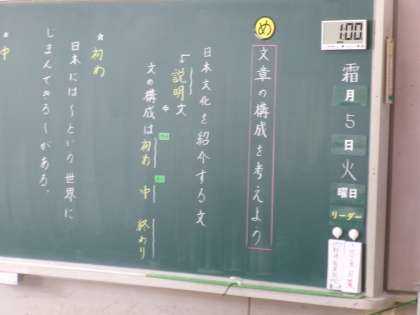 1:00
霜月
5日
火曜日
リーダー
め
文章の構成を考えよう
日本文化を紹介する文
説明文
文の構成は初め 中 終わり
*初め
日本には〜という世界に
中